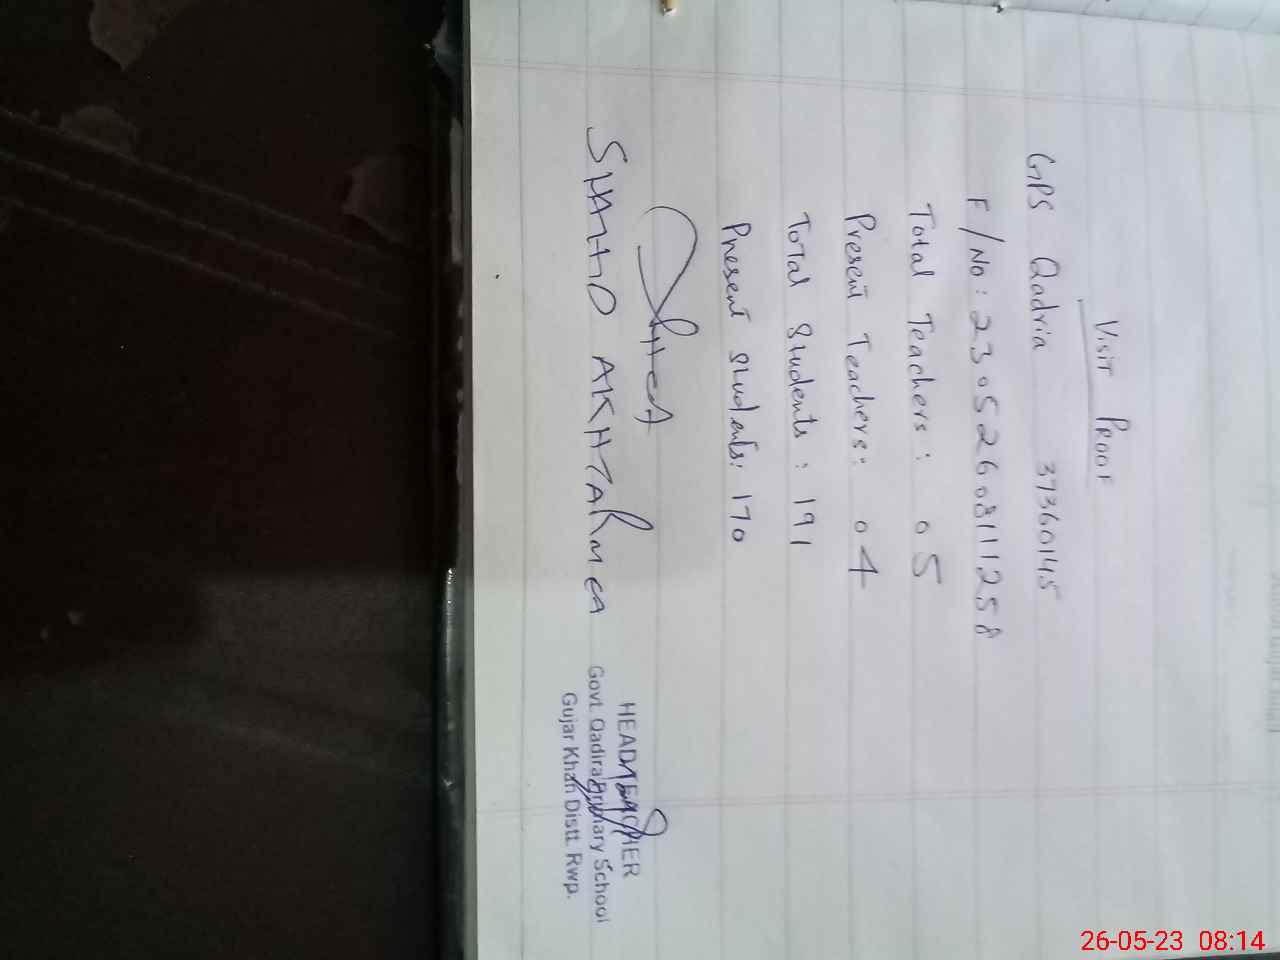 VISIT PROOF
GPS Qadria 37360145
F/No: 23052608111258
Total Teachers: 05
Present Teachers: 04
Total Students: 191
Present Students: 170
SHAHID AKHTAR
HEADTEACHER
Govt. Qadira Primary School
Gujar Khan Distt. Rwp.
26-05-23 08:14